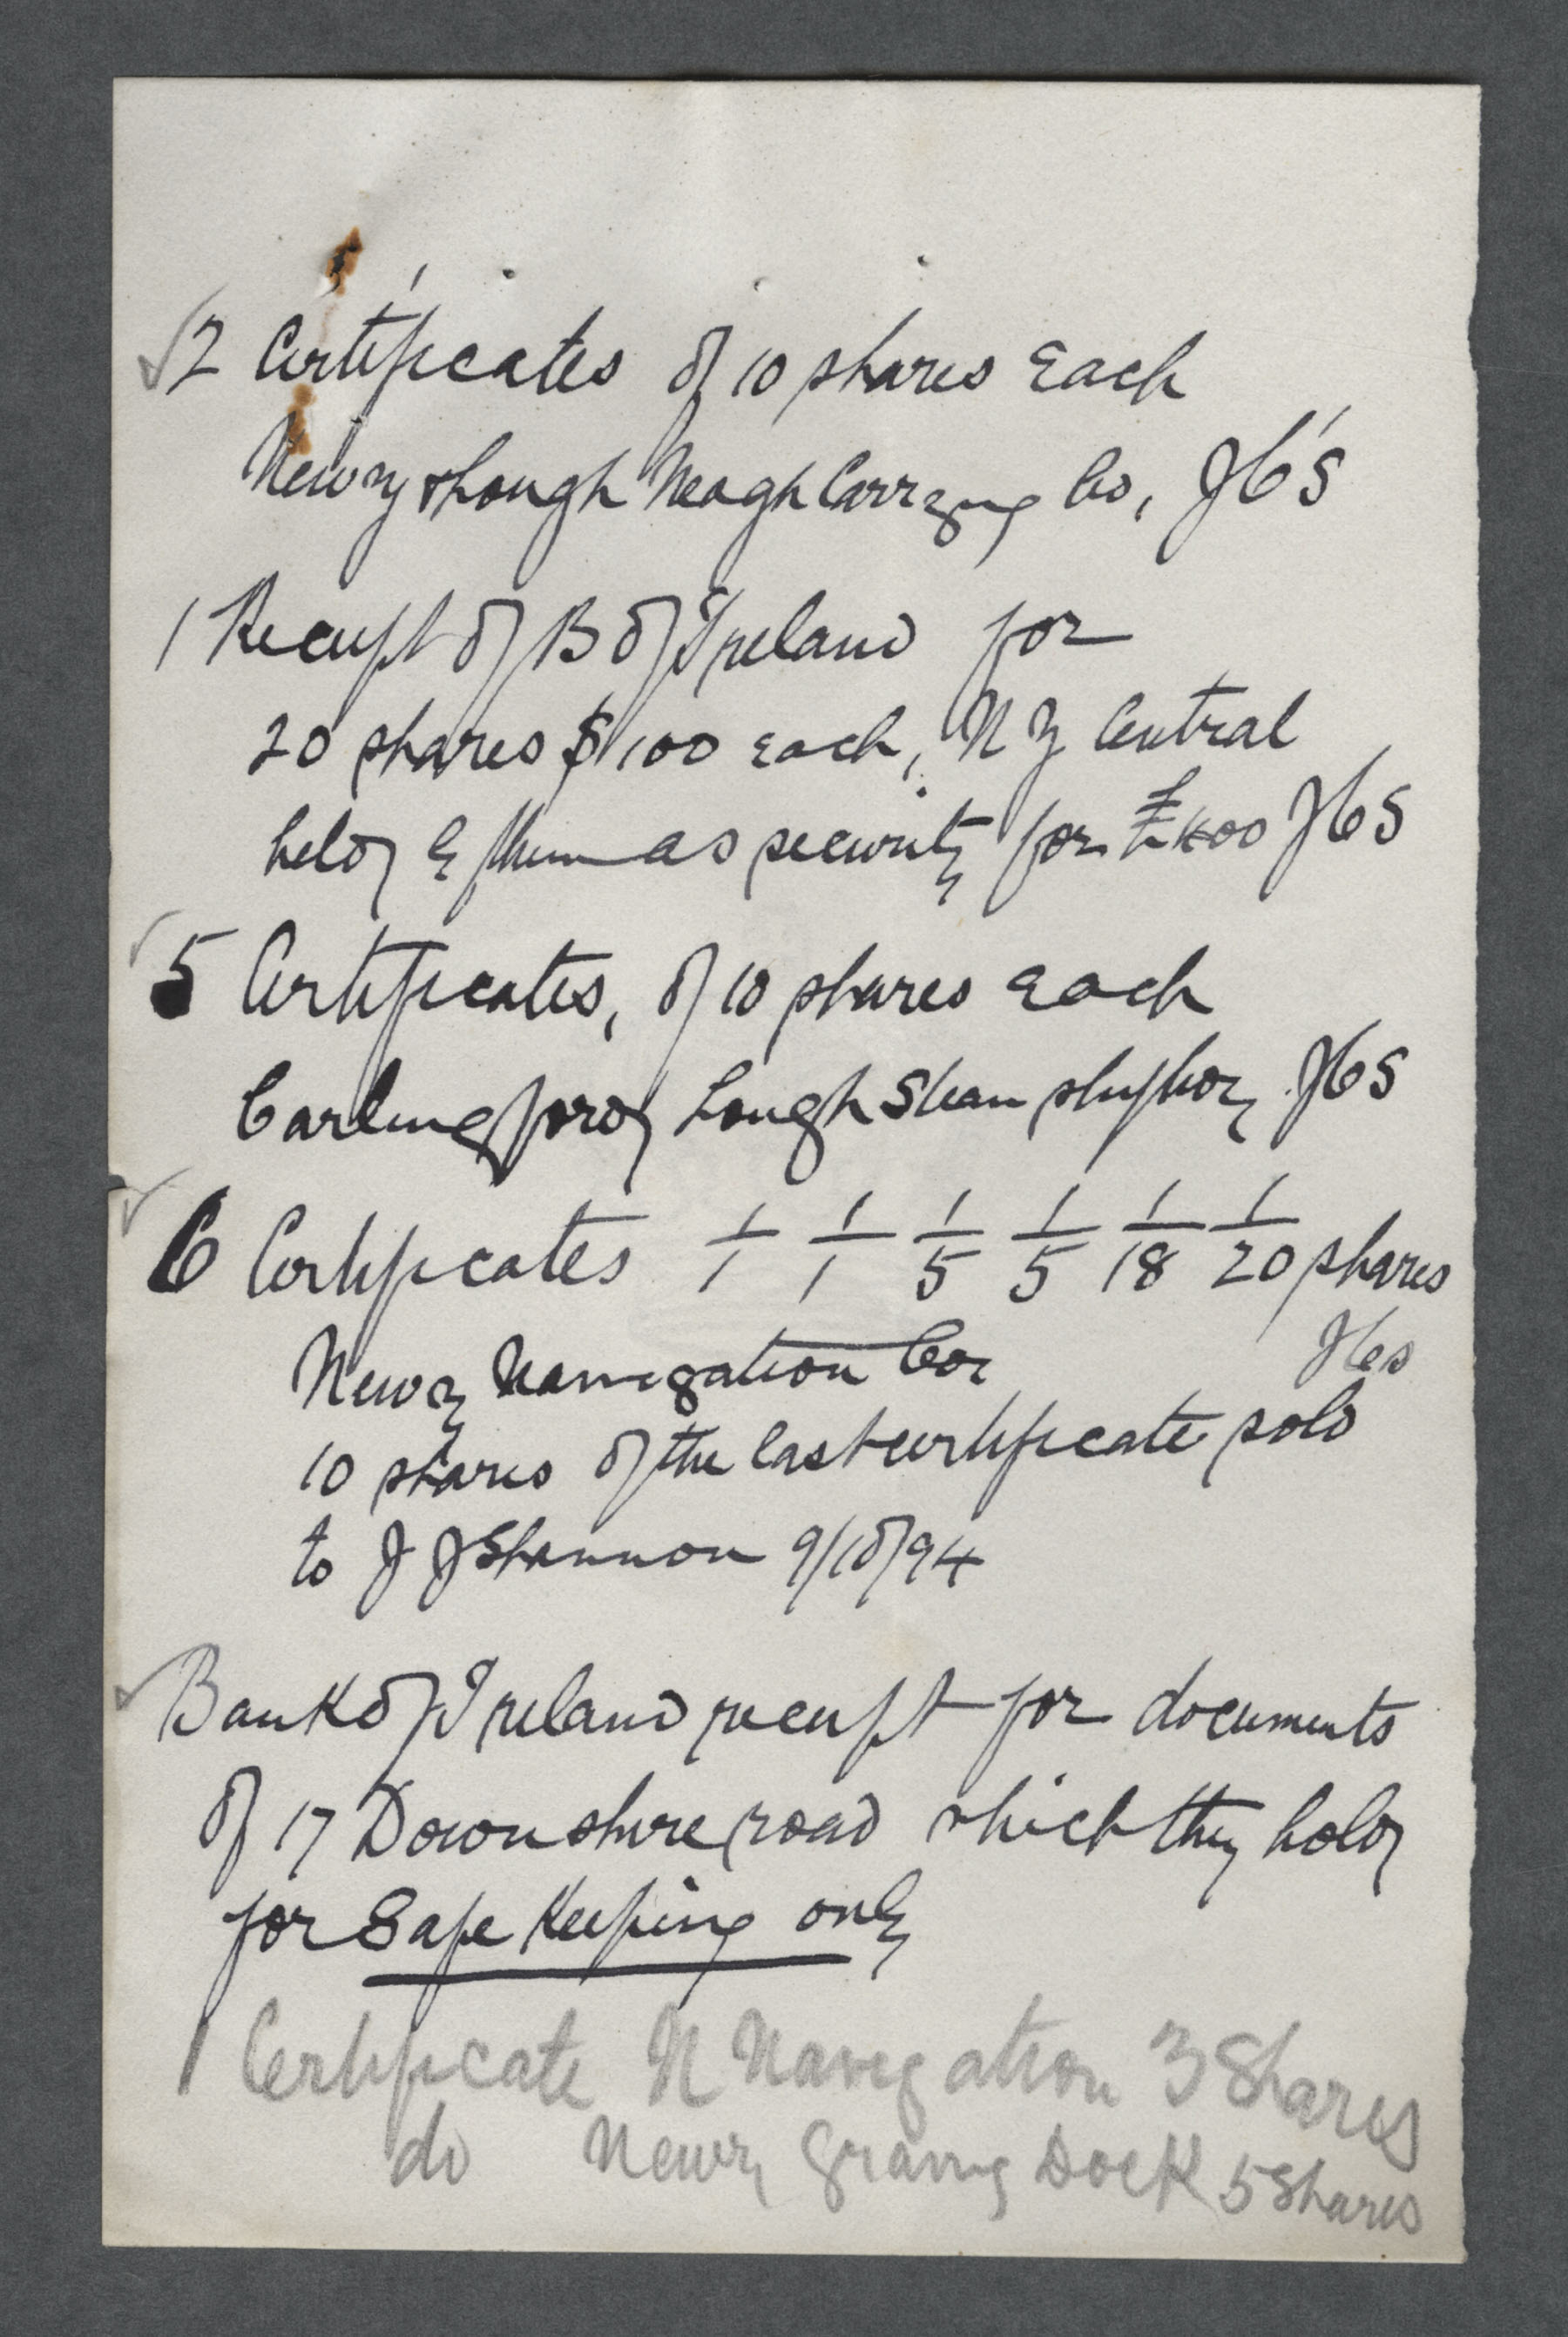 2 Certificates of 10 shares Each
Newry & Lough Neagh Carrying Co, JCS
1 Receipt of B of Ireland for
20 shares $100 each, N Y Central
held by them as security for £400 JCS
5 Certificates, of 10 shares Each
Carlingford Lough Steam ship Coy JCS
6 Certificates 1/1 1/1 1/5 1/5 1/18 1/20 shares
Newry Navigation Coy JCS
10 shares of the last certificate sold
to J J Shannon 9/10/94
Bank of Ireland receipt for documents
of 17 Downshire road which they hold
for Safe Keeping only
1 Certificate N Navigation 3 Shares
do Newry Graving Dock 5 Shares